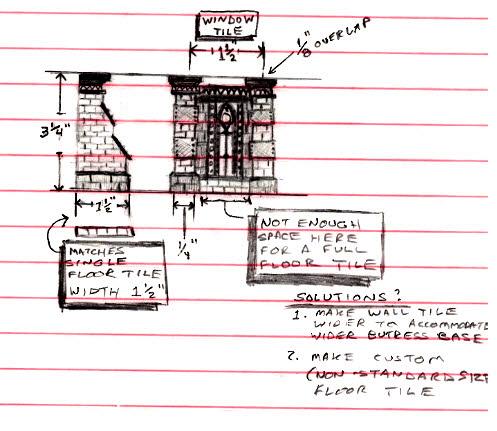 WINDOW
TILE
1 1/2"
1/8" OVERLAP
3 1/4"
1 1/2"
1/4"
MATCHES
SINGLE
FLOOR TILE
WIDTH 1 1/2"
NOT ENOUGH
SPACE HERE
FOR A FULL
FLOOR TILE
SOLUTIONS?
1. MAKE WALL TILE
WIDER TO ACCOMMODATE
WIDER BUTRESS BASE
2. MAKE CUSTOM
(NON-STANDARD SIZE
FLOOR TILE